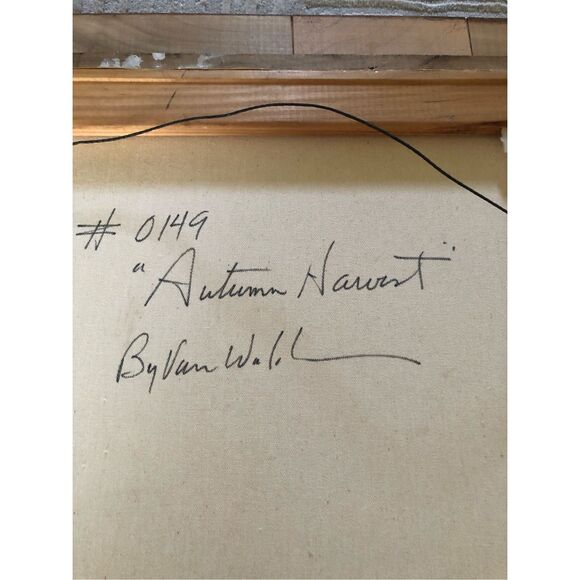 # 0149
"Autumn Harvest"
By Van